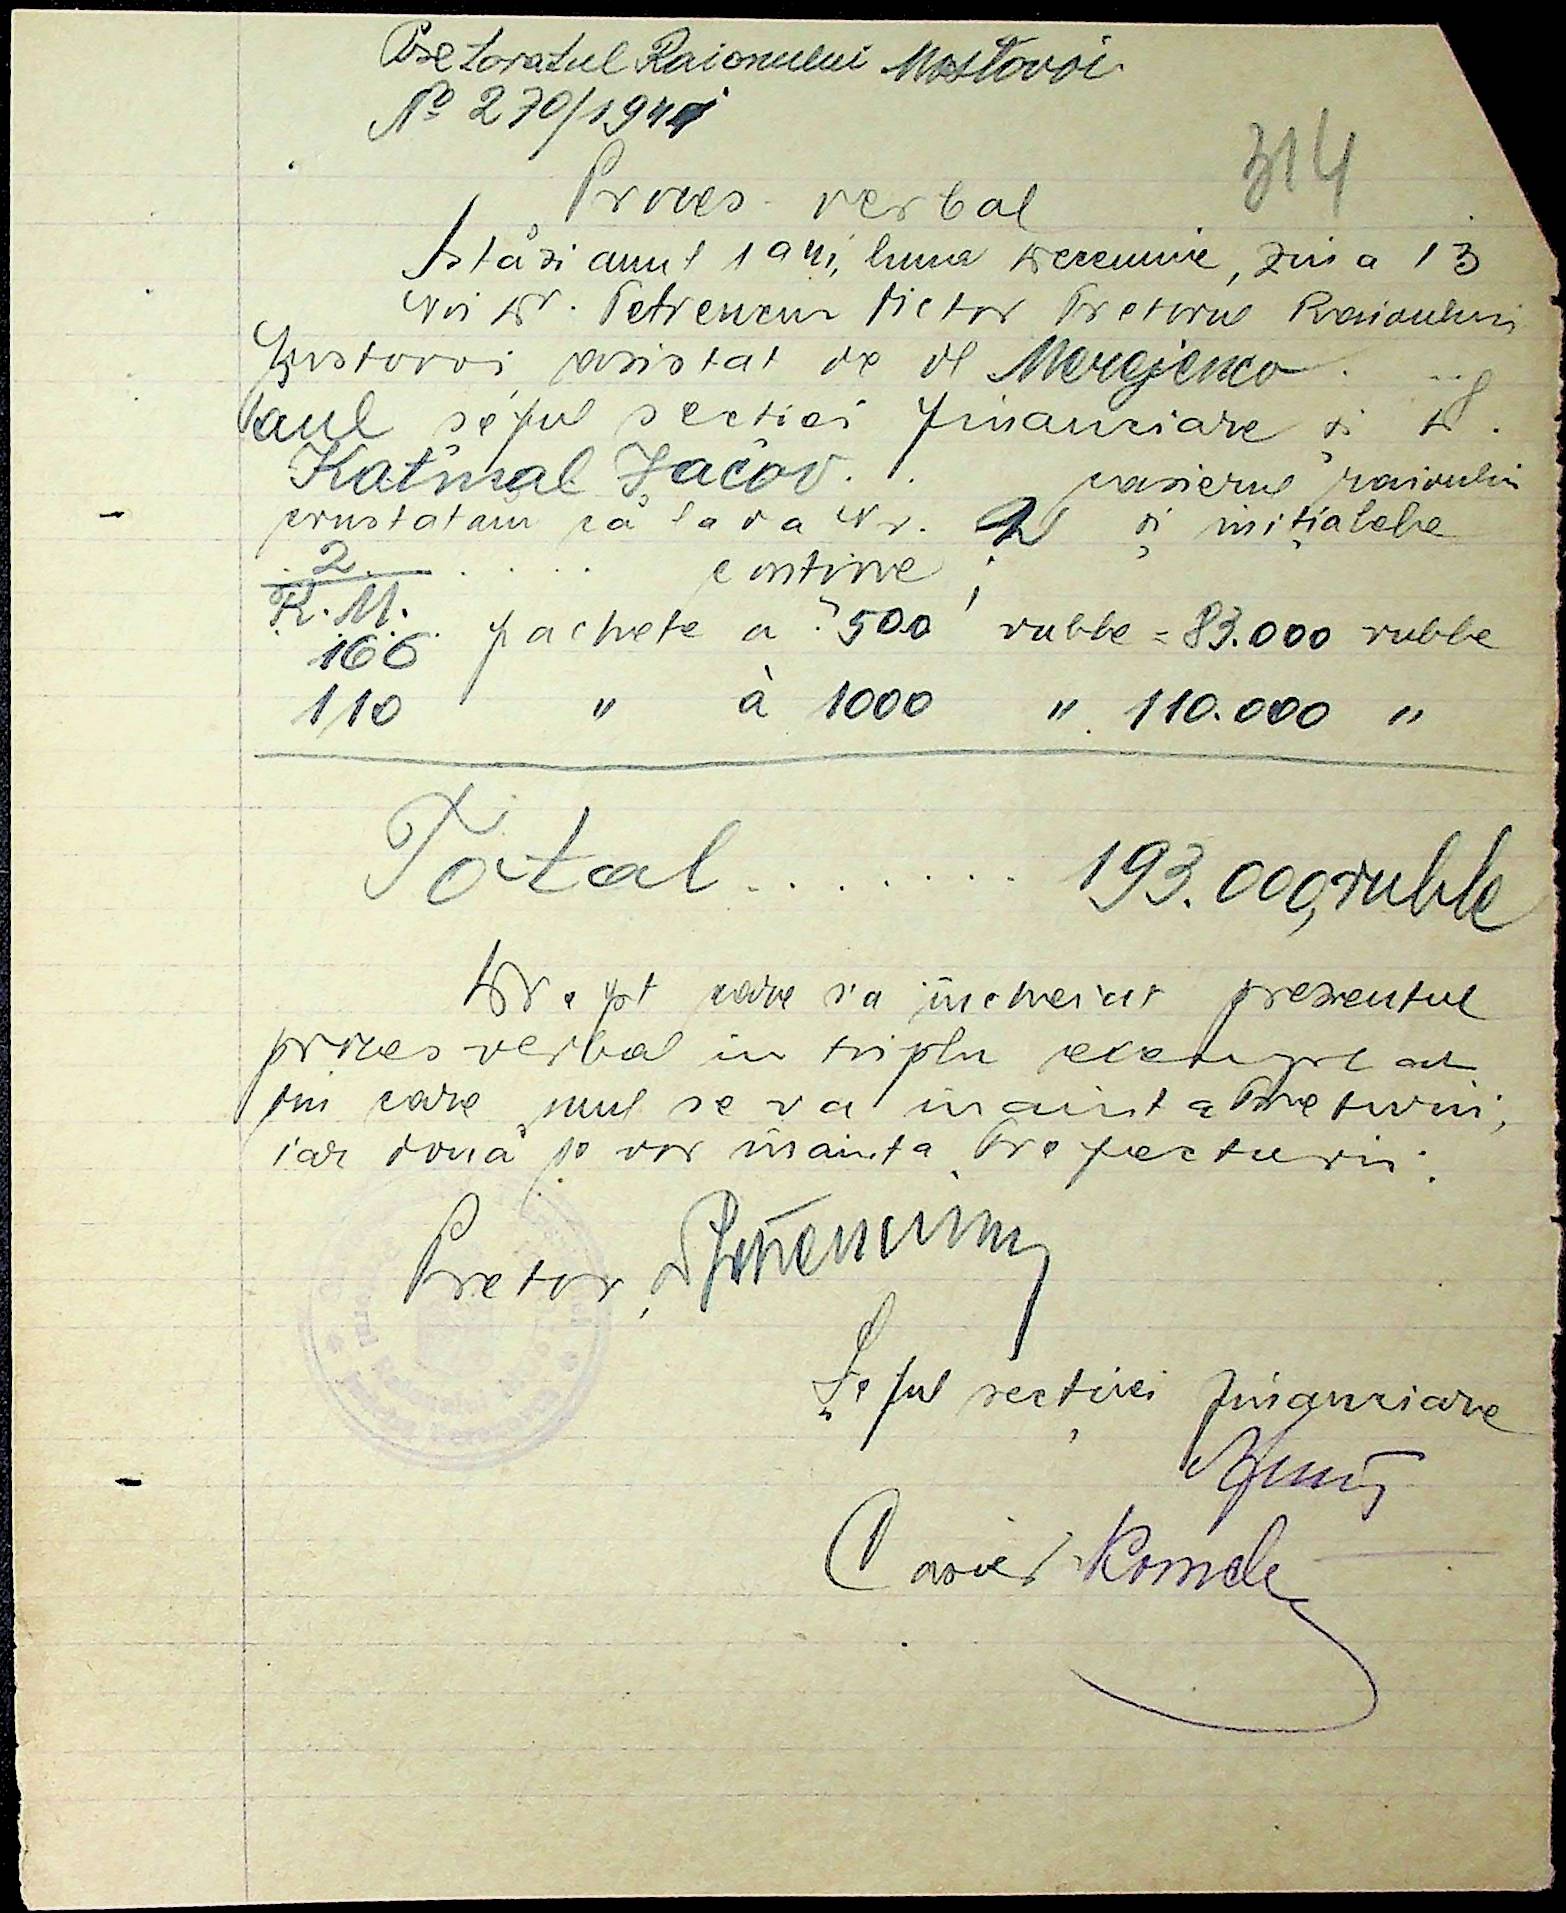 Pretoratul Raionului Mostovoi
Nº 270/1941
314
Proces-verbal
Astăzi anul 1941, luna Decemvrie, ziua 13
Noi Dr. Petrencin Victor Pretorul Raionului
Mostovoi asistat de dl Meregienco
Paul șeful secției financiare și D.
Katinal Jacov. casierul raionului
constatăm că lada Nr. 2 și inițialele
2 conține:
K. M.
166 pachete a 500 ruble = 83.000 ruble
110 " à 1000 " 110.000 "
Total ........ 193.000, ruble
Drept care s'a încheiat prezentul
proces verbal în triplu exemplar
din care unul se va înainta Preturii,
iar două se vor înainta Prefecturii.
Pretor,
Șeful secției financiare
Casier